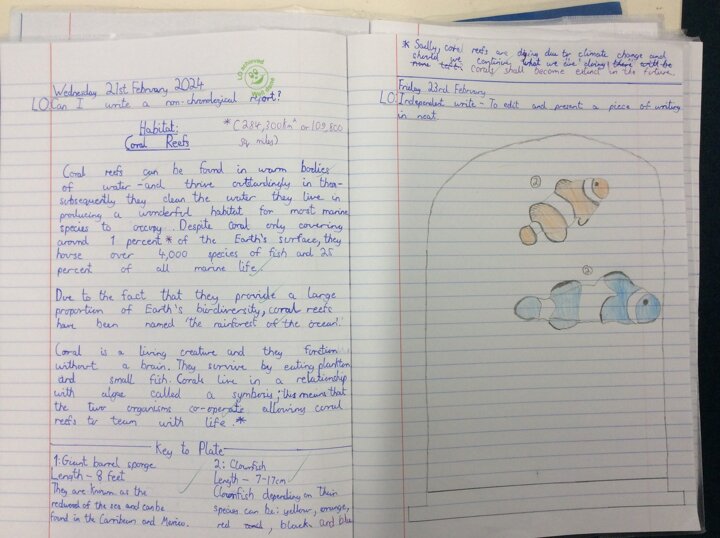 LO achieved
Well done
Wednesday 21st February 2024
LO: Can I write a non-chronological report?
Habitat:
Coral Reefs
* (284,300km² or 109,800
sq miles)
Coral reefs can be found in warm bodies
of water - and thrive outstandingly in them -
subsequently they clean the water they live in
producing a wonderful habitat for most marine
species to occupy. Despite coral only covering
around 1 percent * of the Earth's surface, they
house over 4,000 species of fish and 25
percent of all marine life.
Due to the fact that they provide a large
proportion of Earth's biodiversity, coral reefs
have been named 'the rainforest of the ocean!'
Coral is a living creature and they function
without a brain. They survive by eating plankton
and small fish. Corals live in a relationship
with algae called a symbosis; this means that
the two organisms co-operate allowing coral
reefs to team with life. *
Key to Plate
1: Giant barrel sponge
Length - 8 feet
They are known as the
redwood of the sea and can be
found in the Carribean and Mexico.
2: Clownfish
Length - 7-17cm
Clownfish depending on their
species can be: yellow, orange,
red, black and blue
* Sadly, coral reefs are dying due to climate change and
should we continue what we are doing there will be
corals shall become extinct in the future.
Friday 23rd February
LO: Independent write - To edit and present a piece of writing
in neat.
2
2